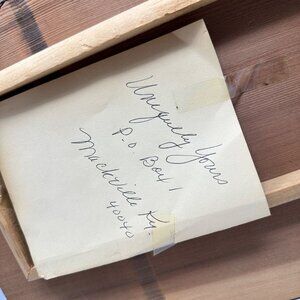 Uniquely Yours
P.O. Box 1
Mackville Ky.
40040